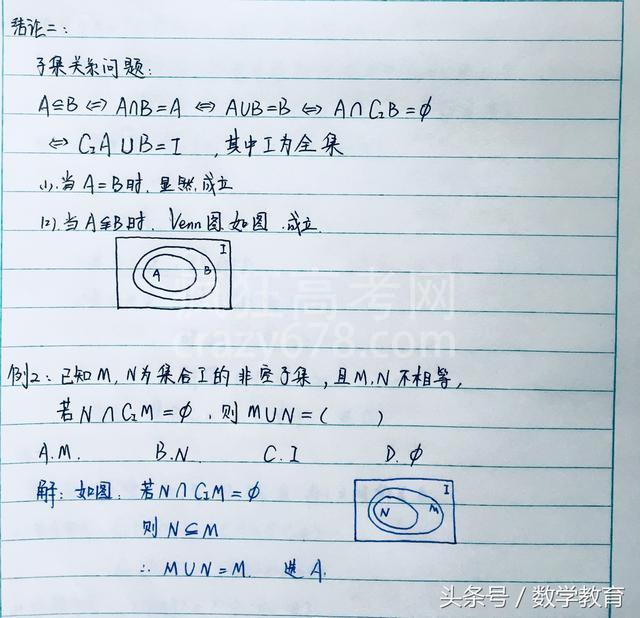 结论二:
子集关系问题:
A⊆B ⇔ A∩B=A ⇔ A∪B=B ⇔ A∩C_IB=∅
⇔ C_IA∪B=I ,其中I为全集
(1).当A=B时.显然.成立
(2).当A⫋B时.Venn图如图.成立.
I
A B
疯狂高考网
crazy678.com
例2:已知M,N为集合I的非空子集,且M.N不相等,
若N∩C_IM=∅,则M∪N=( )
A.M. B.N. C.I D.∅
解:如图.若N∩C_IM=∅
则N⊆M
∴M∪N=M. 选A.
I
N M
头条号/数学教育